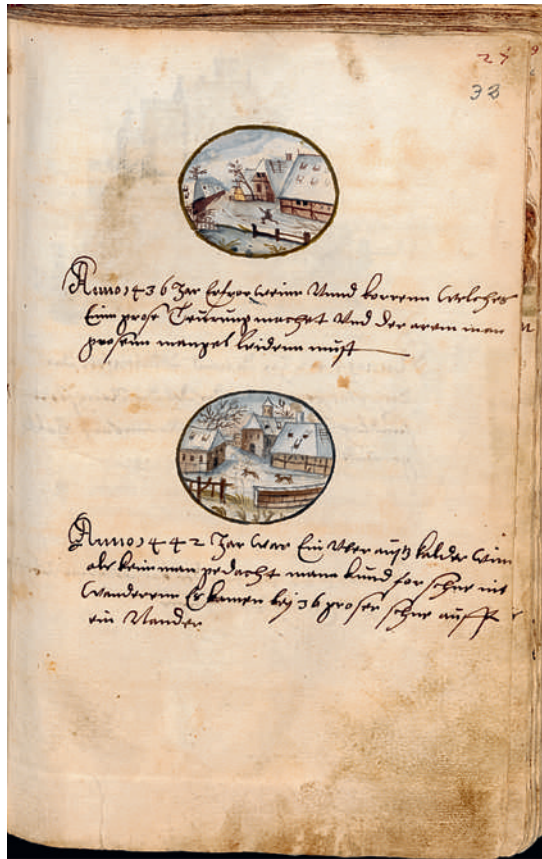 27
38
Anno 1436 Jar Erfror weinn Vnnd korrenn welches
Einn grose Teurung machet Vnd der arem man
grosenn mangel leidenn must
Anno 1442 Jar war Ein Vber auß kalder Winn
als kein man gedacht mann kund for schne nit
Wanderenn Es kamen bej 36 groser schne auff
ein Nander